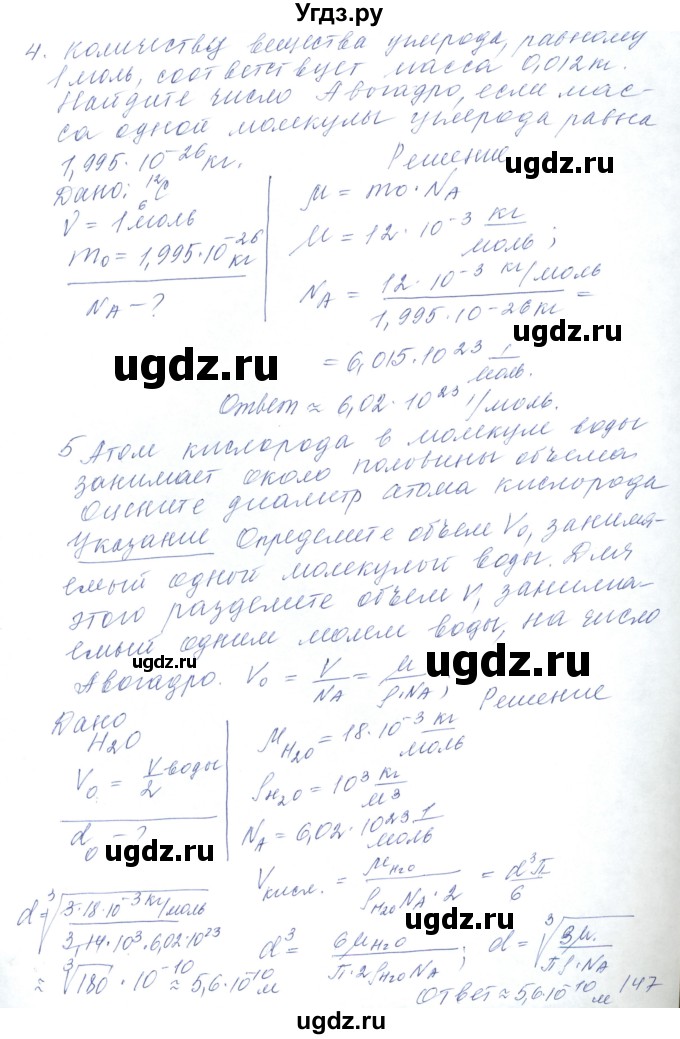 Угдз.ру
4. количеству вещества углерода, равному
1 моль, соответствует масса 0,012 кг.
Найдите число Авогадро, если мас-
са одной молекулы углерода равна
1,995·10⁻²⁶ кг.
Решение
ugdz.ru
Дано: ¹²₆C
ν = 1 моль
m₀ = 1,995·10⁻²⁶ кг
Nₐ - ?
μ = m₀·Nₐ
μ = 12·10⁻³ кг/моль;
Nₐ = 12·10⁻³ кг/моль / 1,995·10⁻²⁶ кг =
ugdz.ru
ugdz.ru
= 6,015·10²³ 1/моль.
ugdz.ru
Ответ ≈ 6,02·10²³ 1/моль.
5 Атом кислорода в молекуле воды
занимает около половины объема
Оцените диаметр атома кислорода
Указание Определите объем V₀, занима-
емый одной молекулой воды. Для
этого разделите объем V, занима-
емый одним молем воды, на число
Авогадро. V₀ = V/Nₐ = μ/ρ·Nₐ; Решение
ugdz.ru
ugdz.ru
Дано
H₂O
V₀ = V воды/2
d₀ - ?
ugdz.ru
μ_H₂O = 18·10⁻³ кг/моль
ρ_H₂O = 10³ кг/м³
Nₐ = 6,02·10²³ 1/моль
ugdz.ru
V кисл. = μ_H₂O / ρ_H₂O Nₐ·2 = d³π/6
d = ³√(3·18·10⁻³ кг/моль / 3,14·10³·6,02·10²³)
≈ ³√180 · 10⁻¹⁰ ≈ 5,6·10⁻¹⁰ м
ugdz.ru
d³ = 6μ_H₂O / π·2ρ_H₂O Nₐ; d = ³√(3μ / πρ·Nₐ)
ugdz.ru
Ответ ≈ 5,6·10⁻¹⁰ м
147
ugdz.ru